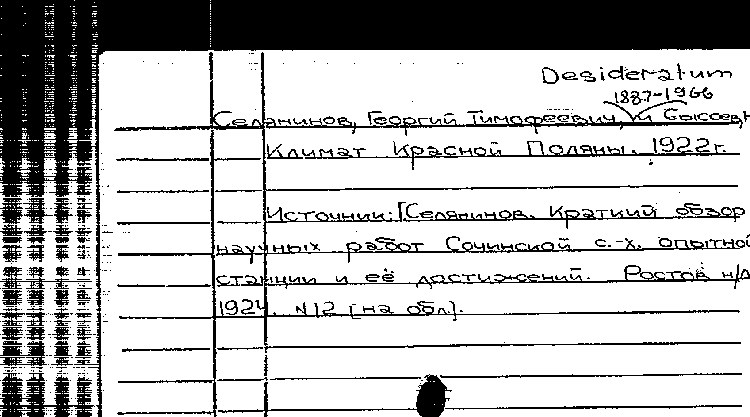 Desideratum
1887-1966
Селянинов, Георгий Тимофеевич, и Сысоев,
Климат Красной Поляны. 1922г.
Источник: [Селянинов. Краткий обзор
научных работ Сочинской с.-х. опытной
станции и её достижений. Ростов н/Д
1924. №12 [на обл].